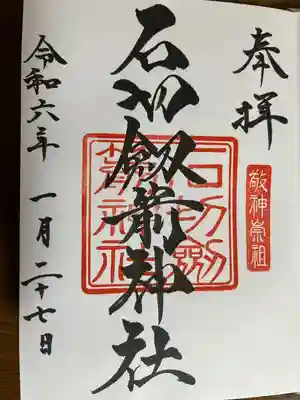 奉拝
敬神崇祖
石切劔箭神社
石切劔箭神社
令和六年 一月 二十七日